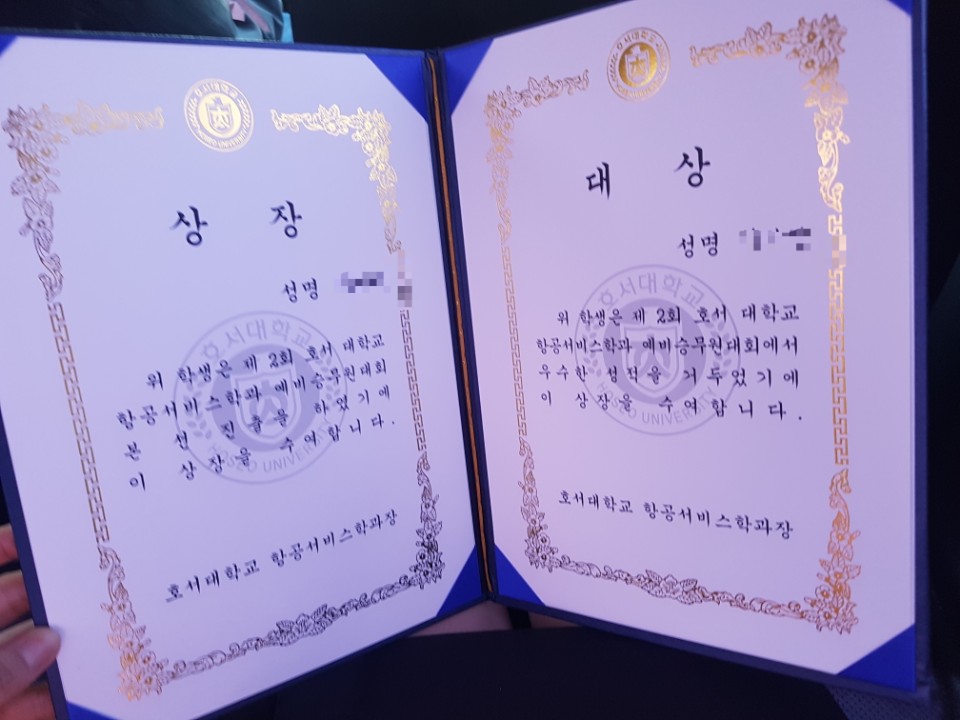 상 장
성명
위 학생은 제 2회 호서 대학교
항공서비스학과 예비승무원대회
본 선 진출을 하였기에
이 상장을 수여합니다.
호서대학교 항공서비스학과장
호서대학교
HOSEO UNIVERSITY
대 상
성명
위 학생은 제 2회 호서 대학교
항공서비스학과 예비승무원대회에서
우수한 성적을 거두었기에
이 상장을 수여합니다.
호서대학교 항공서비스학과장
호서대학교
HOSEO UNIVERSITY